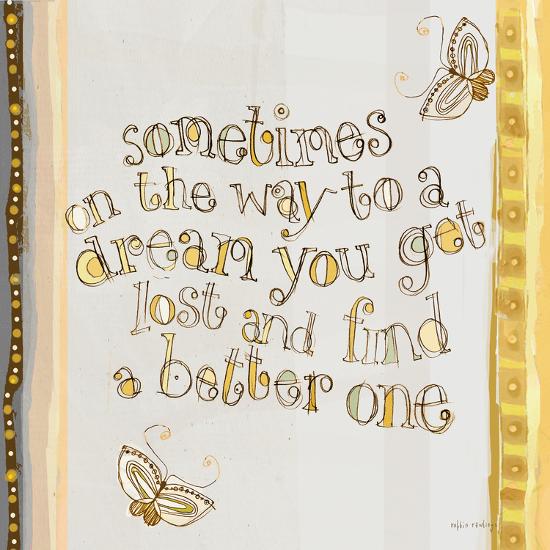 sometimes
on the way to a
dream you get
lost and find
a better one
robbin rawlings